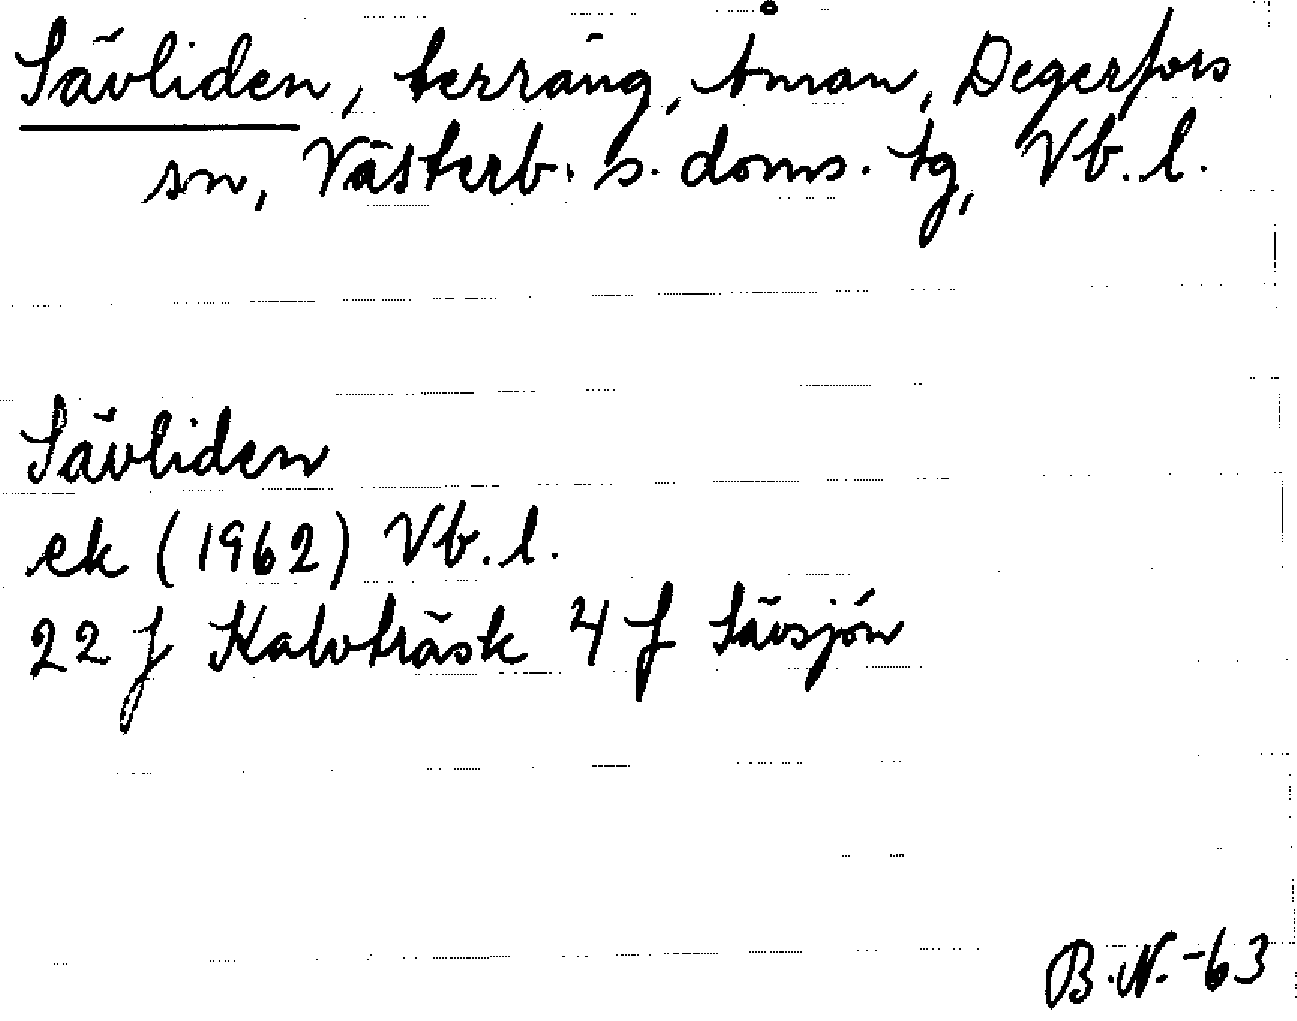 Sävliden, terräng, Åman, Degerfors
sn, Västerb. s. doms. tg, Vb. l.
Sävliden
ek (1962) Vb. l.
22 J Kalvträsk 4 f Sävsjön
B.N. -63